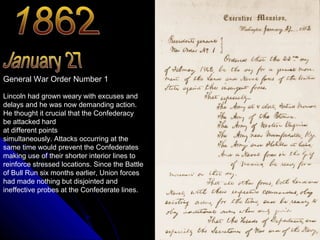 1862
January 27
General War Order Number 1
Lincoln had grown weary with excuses and
delays and he was now demanding action.
He thought it crucial that the Confederacy
be attacked hard
at different points
simultaneously. Attacks occurring at the
same time would prevent the Confederates
making use of their shorter interior lines to
reinforce stressed locations. Since the Battle
of Bull Run six months earlier, Union forces
had made nothing but disjointed and
ineffective probes at the Confederate lines.
Executive Mansion,
January 27, 1862
President's general
War Order No. 1
Ordered that the 22nd
of February 1862, be the day for a general
move-
ment of the Land and Naval forces of the United
States against the insurgent forces.
That especially
The Army
The Army of the Potomac
The Army of Western Virginia
The Army near
That all other forces, both Land and
Naval, with their respective commanders, obey
existing orders, for the time, and be ready to
obey additional orders when duly given.
That the Heads of Departments, and
especially the Secretaries of War and of the Navy